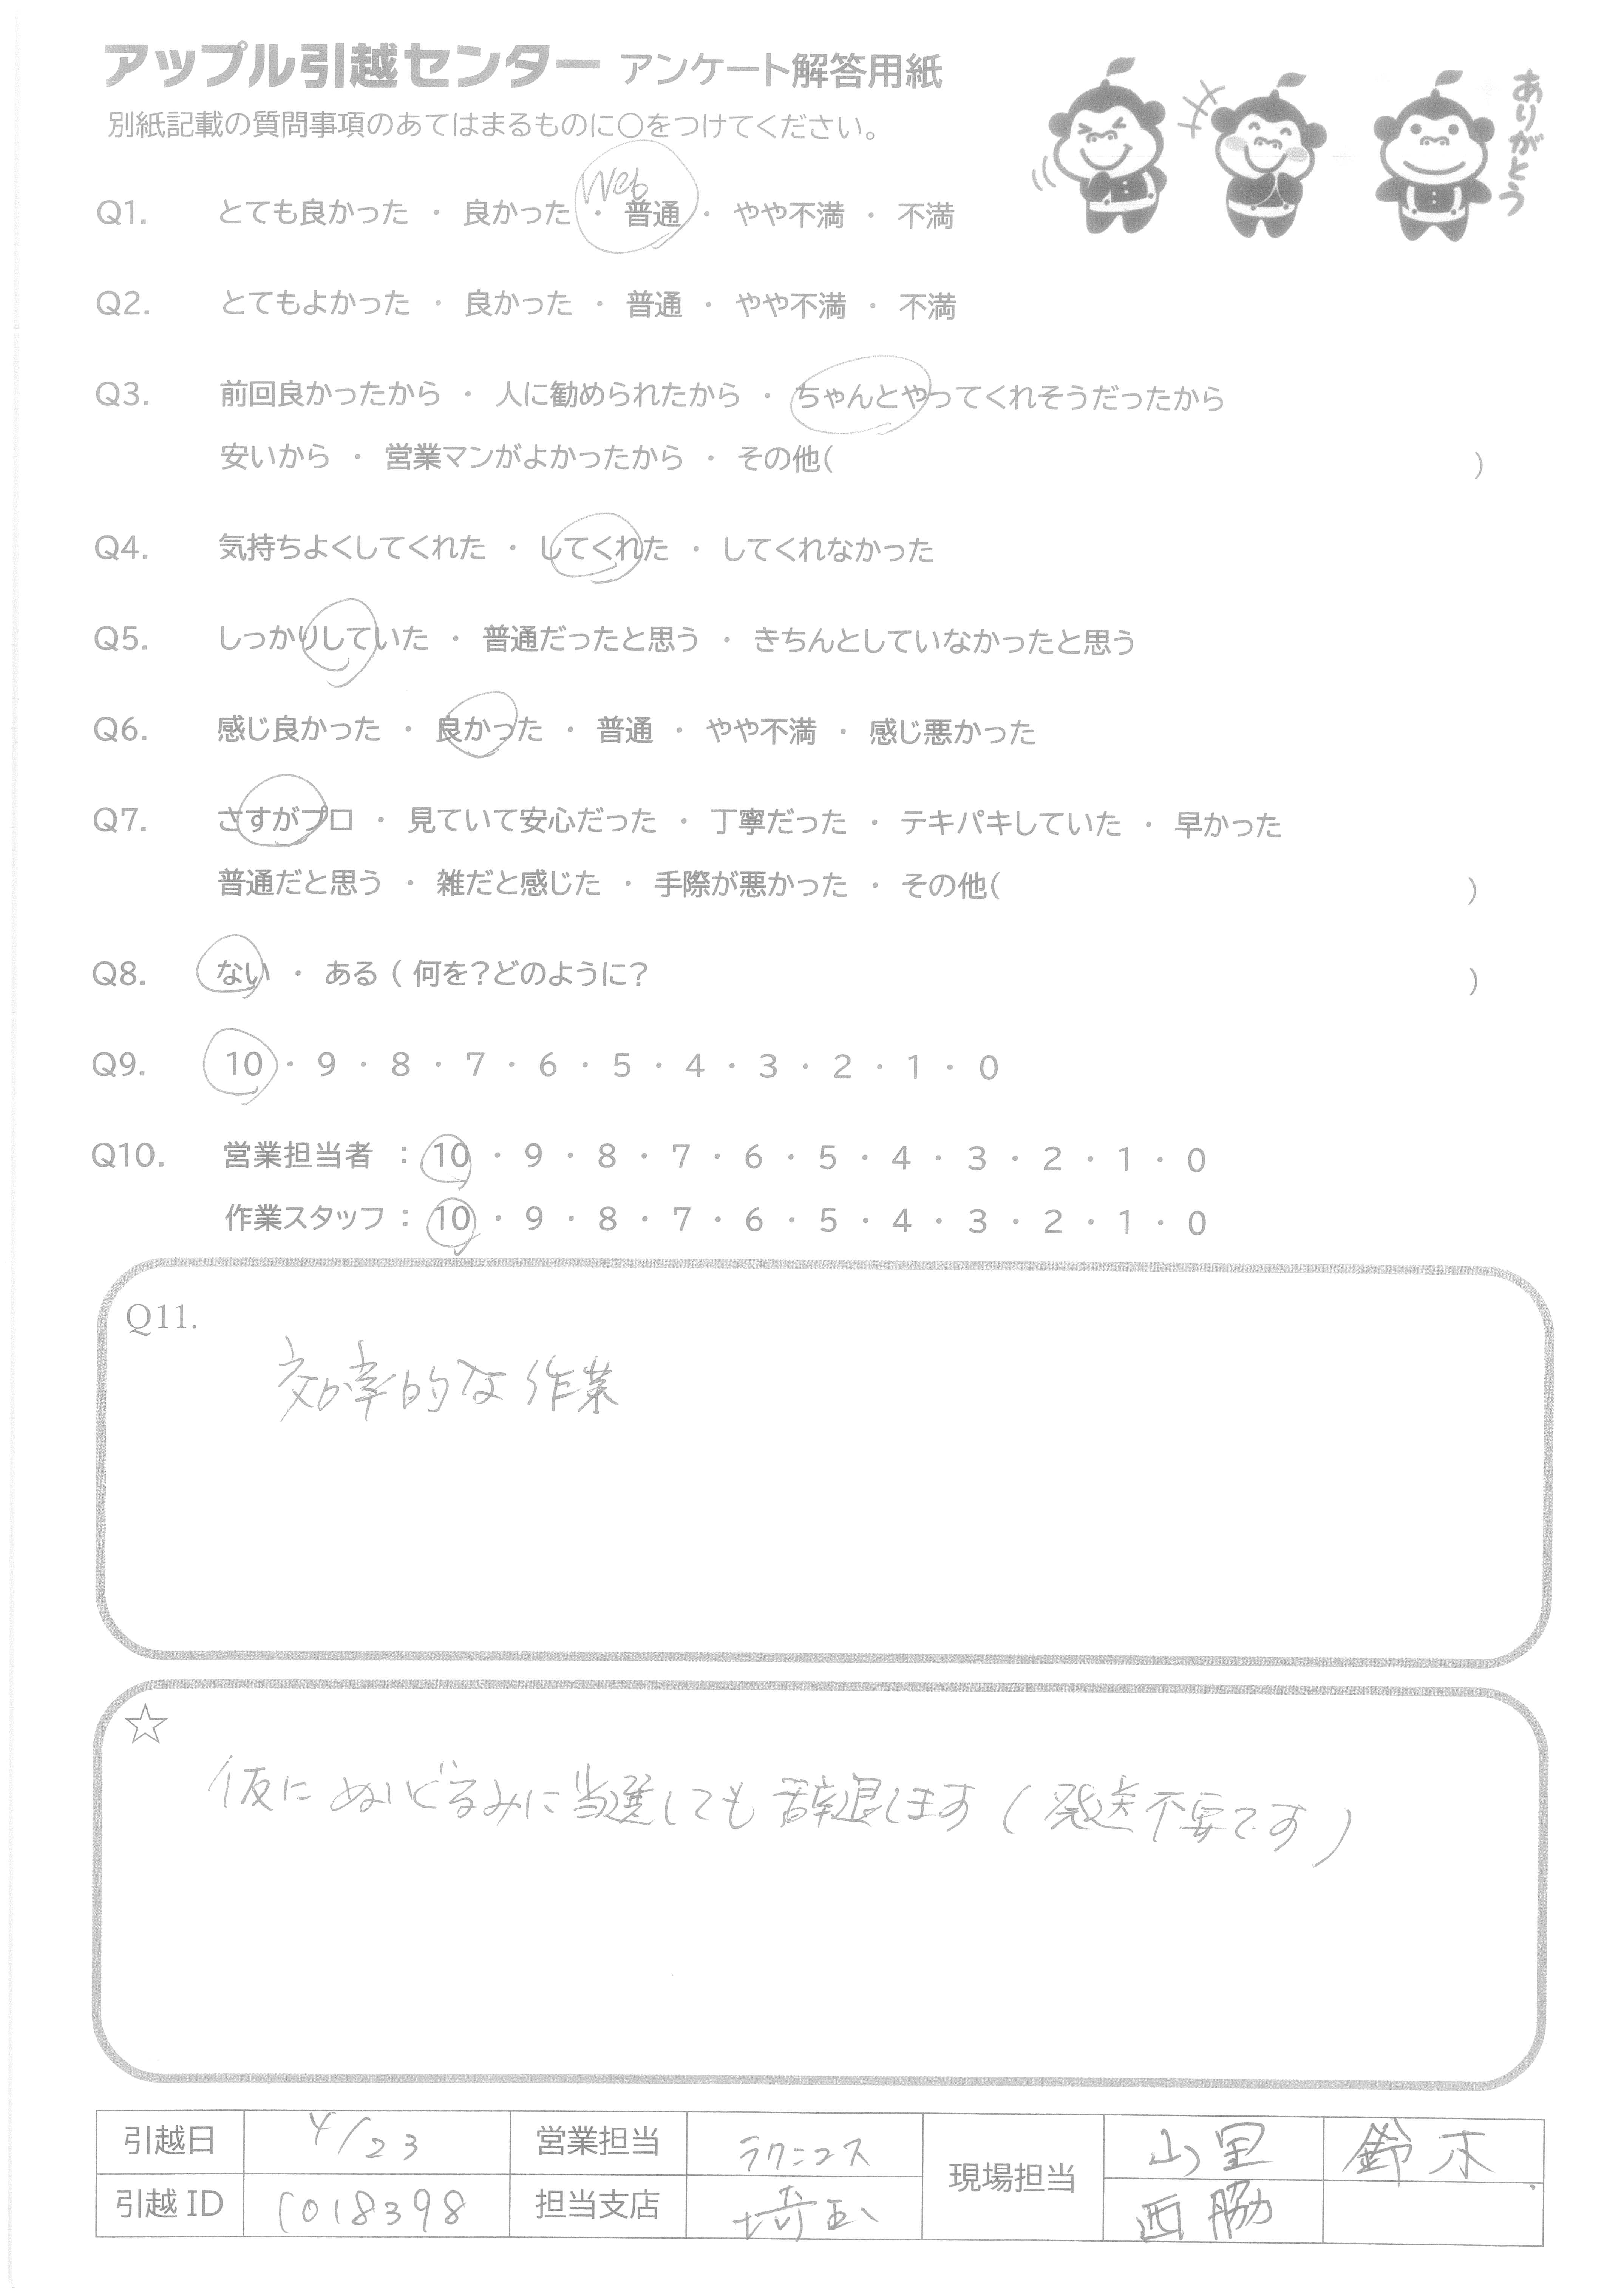 アップル引越センター アンケート解答用紙
別紙記載の質問事項のあてはまるものに○をつけてください。
ありがとう
Web
Q1. とても良かった ・ 良かった ・ 普通 ・ やや不満 ・ 不満
Q2. とてもよかった ・ 良かった ・ 普通 ・ やや不満 ・ 不満
Q3. 前回良かったから ・ 人に勧められたから ・ ちゃんとやってくれそうだったから
安いから ・ 営業マンがよかったから ・ その他( )
Q4. 気持ちよくしてくれた ・ してくれた ・ してくれなかった
Q5. しっかりしていた ・ 普通だったと思う ・ きちんとしていなかったと思う
Q6. 感じ良かった ・ 良かった ・ 普通 ・ やや不満 ・ 感じ悪かった
Q7. さすがプロ ・ 見ていて安心だった ・ 丁寧だった ・ テキパキしていた ・ 早かった
普通だと思う ・ 雑だと感じた ・ 手際が悪かった ・ その他( )
Q8. ない ・ ある ( 何を?どのように? )
Q9. 10 ・ 9 ・ 8 ・ 7 ・ 6 ・ 5 ・ 4 ・ 3 ・ 2 ・ 1 ・ 0
Q10. 営業担当者 : 10 ・ 9 ・ 8 ・ 7 ・ 6 ・ 5 ・ 4 ・ 3 ・ 2 ・ 1 ・ 0
作業スタッフ : 10 ・ 9 ・ 8 ・ 7 ・ 6 ・ 5 ・ 4 ・ 3 ・ 2 ・ 1 ・ 0
Q11.
効率的な作業
☆
仮にぬいぐるみに当選しても辞退します(発送不要です)
引越日 4/23 営業担当 ラクニコス 現場担当 山里 鈴木
引越 ID 1018398 担当支店 埼玉 西脇